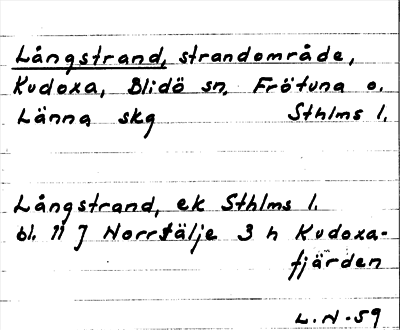 Långstrand, strandområde,
Kudoxa, Blidö sn, Frötuna o.
Länna skg Sthlms l.
Långstrand, ek Sthlms l.
bl. 11 J Norrtälje 3 h Kudoxa-
fjärden
L.N-59